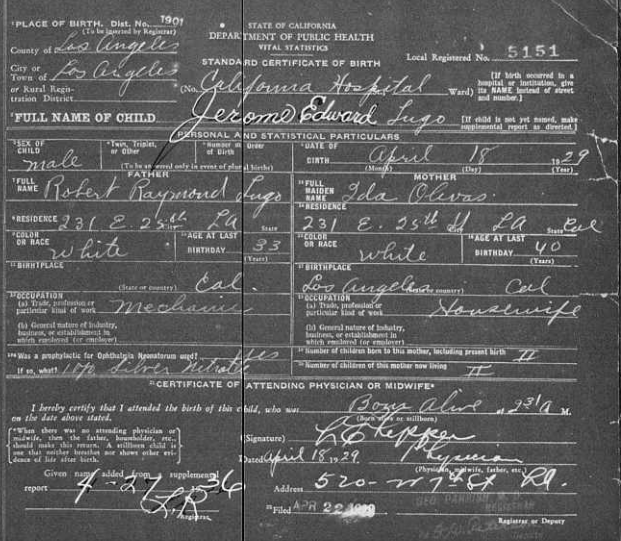 PLACE OF BIRTH. Dist. No. 1901
(To be inserted by Registrar)
STATE OF CALIFORNIA
DEPARTMENT OF PUBLIC HEALTH
VITAL STATISTICS
County of Los Angeles
STANDARD CERTIFICATE OF BIRTH
Local Registered No. 5151
City or
Town of Los Angeles
or Rural Regis-
tration District
(No. California Hospital Ward)
[If birth occurred in a
hospital or institution, give
its NAME instead of street
and number.]
FULL NAME OF CHILD Jerome Edward Lugo
[If child is not yet named, make
supplemental report as directed]
PERSONAL AND STATISTICAL PARTICULARS
SEX OF
CHILD male
Twin, Triplet,
or Other
Number in Order
of Birth
(To be answered only in event of plural births)
DATE OF
BIRTH April 18 1929
(Month) (Day) (Year)
FATHER
FULL
NAME Robert Raymond Lugo
MOTHER
FULL
MAIDEN
NAME Ida Olivas
RESIDENCE
231 E. 25th LA
State
RESIDENCE
231 E. 25th St LA State Cal
COLOR
OR RACE White
AGE AT LAST
BIRTHDAY 33
(Years)
COLOR
OR RACE White
AGE AT LAST
BIRTHDAY 40
(Years)
BIRTHPLACE
(State or country) Cal.
BIRTHPLACE
Los Angeles (State or country) Cal
OCCUPATION
(a) Trade, profession or
particular kind of work Mechanic
(b) General nature of industry,
business, or establishment in
which employed (or employer)
OCCUPATION
(a) Trade, profession or
particular kind of work Housewife
(b) General nature of industry,
business, or establishment in
which employed (or employer)
Was a prophylactic for Ophthalmia Neonatorum used? yes
If so, what? 1% Silver Nitrate
Number of children born to this mother, including present birth II
Number of children of this mother now living II
CERTIFICATE OF ATTENDING PHYSICIAN OR MIDWIFE*
I hereby certify that I attended the birth of this child, who was Born Alive at 2:31 A M.
on the date above stated.
(Born alive or stillborn)
*When there was no attending physician or
midwife, then the father, householder, etc.,
should make this return. A stillborn child is
one that neither breathes nor shows other evi-
dence of life after birth.
(Signature)
Dated April 18, 1929 Physician
(Physician, midwife, father, etc.)
Given name added from a supplemental
report 4-27 36
Registrar
Address 520 W 7th St LA.
Filed APR 22 1929
REGISTRAR
Registrar or Deputy